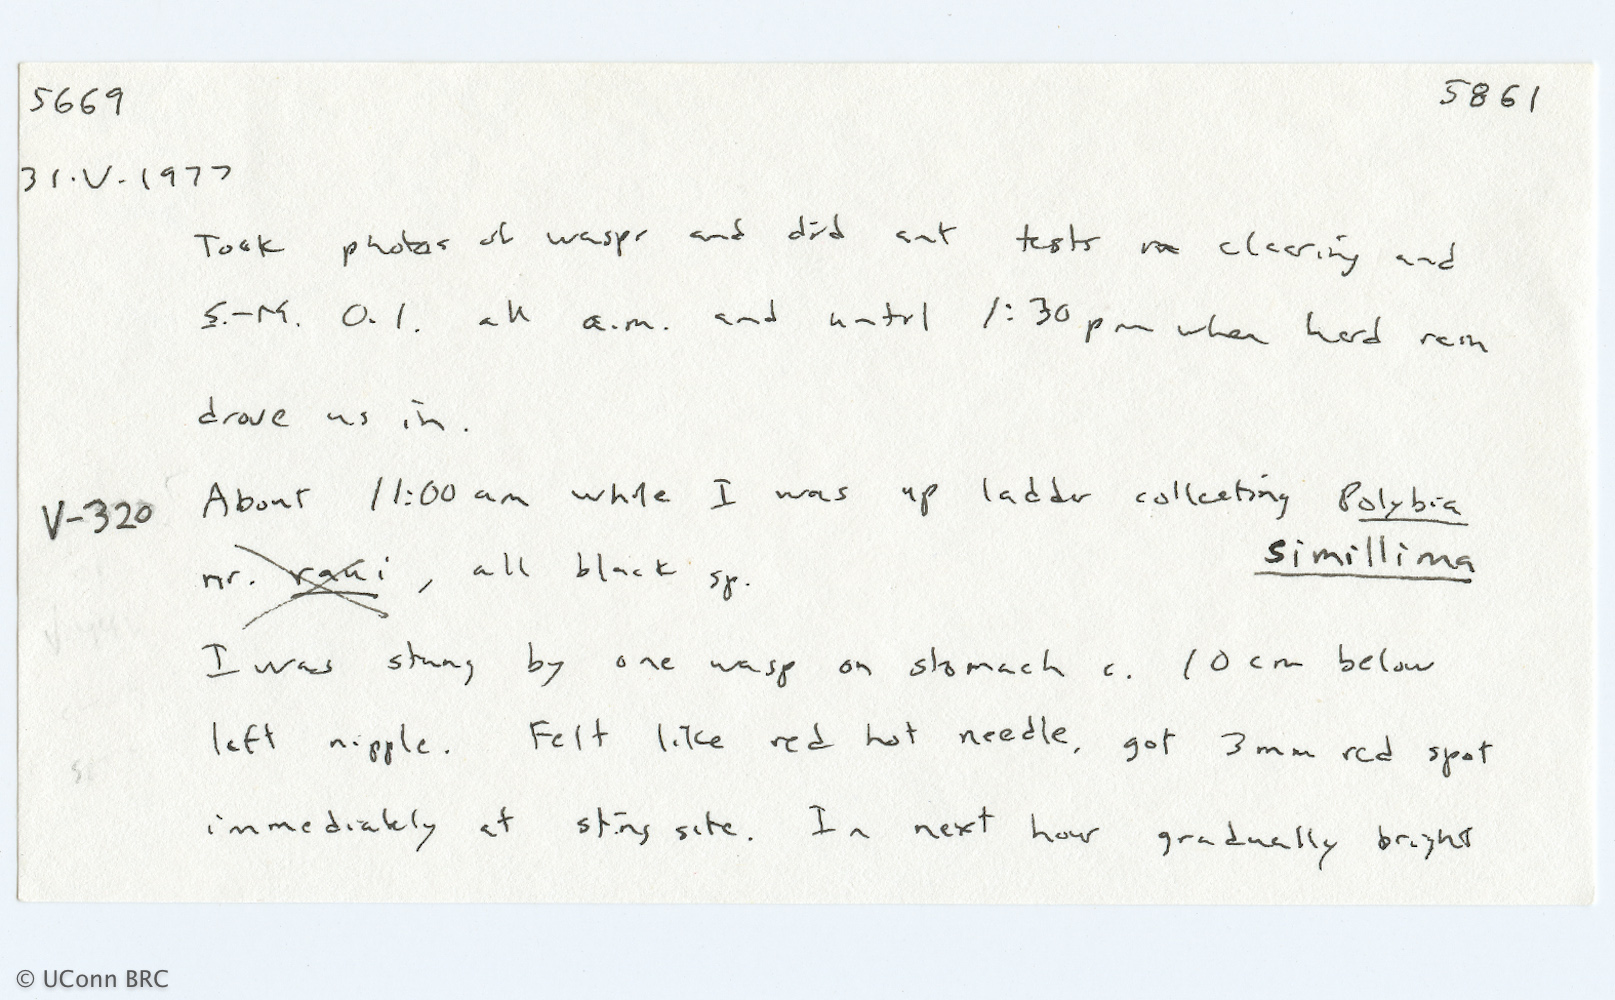 5669 5861
31.V.1977
Took photos of wasps and did ant tests in clearing and
S.-M. O.I. all a.m. and until 1:30 pm when hard rain
drove us in.
V-320 About 11:00 am while I was up ladder collecting Polybia
simillima
nr. , all black sp.
I was stung by one wasp on stomach c. 10 cm below
left nipple. Felt like red hot needle, got 3mm red spot
immediately at sting site. In next hour gradually bright
© UConn BRC